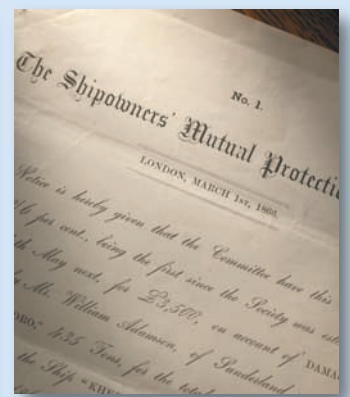 No. 1.
The Shipowners' Mutual Protectio
LONDON, MARCH 1st, 1860.
Notice is hereby given that the Committee have this
per cent., being the first since the Society was est
May next, for £3,500, on account of DAMA
Mr. William Adamson, of Sunderland
ORO," 435 Tons, for the total
the Ship "KHE